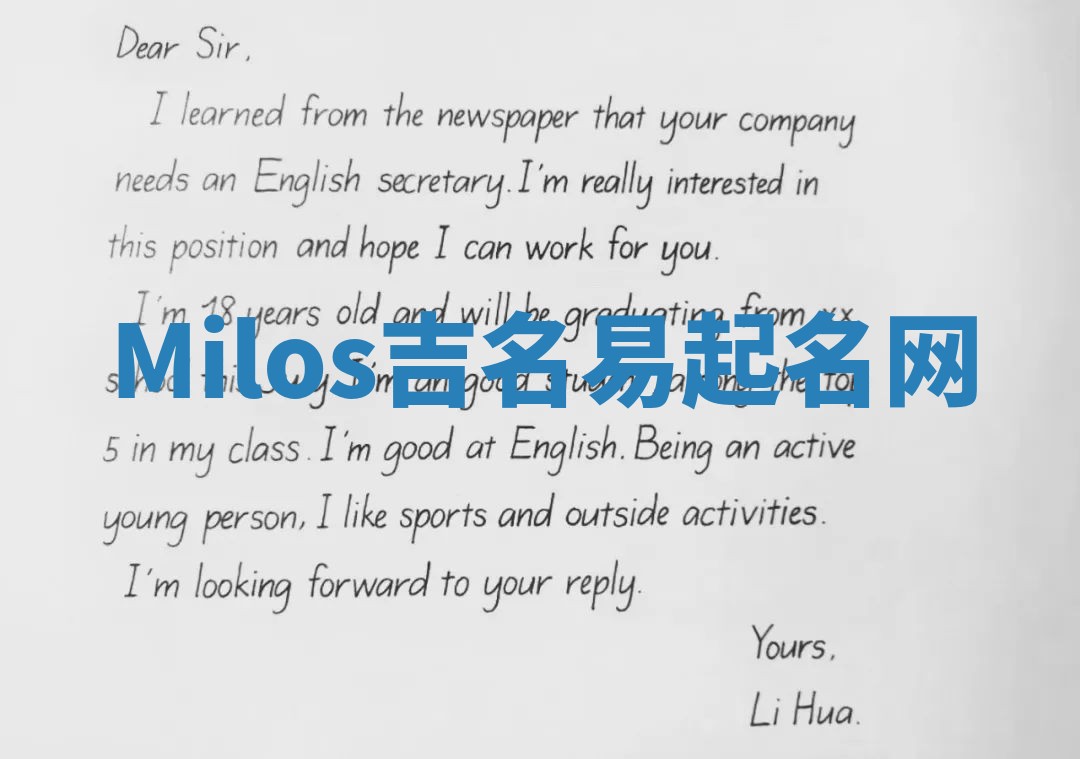 Dear Sir,
I learned from the newspaper that your company
needs an English secretary. I'm really interested in
this position and hope I can work for you.
I'm 18 years old and will be graduating from xx
Milos吉名易起名网
school this July. I'm an good student among the top
5 in my class. I'm good at English. Being an active
young person, I like sports and outside activities.
I'm looking forward to your reply.
Yours,
Li Hua.